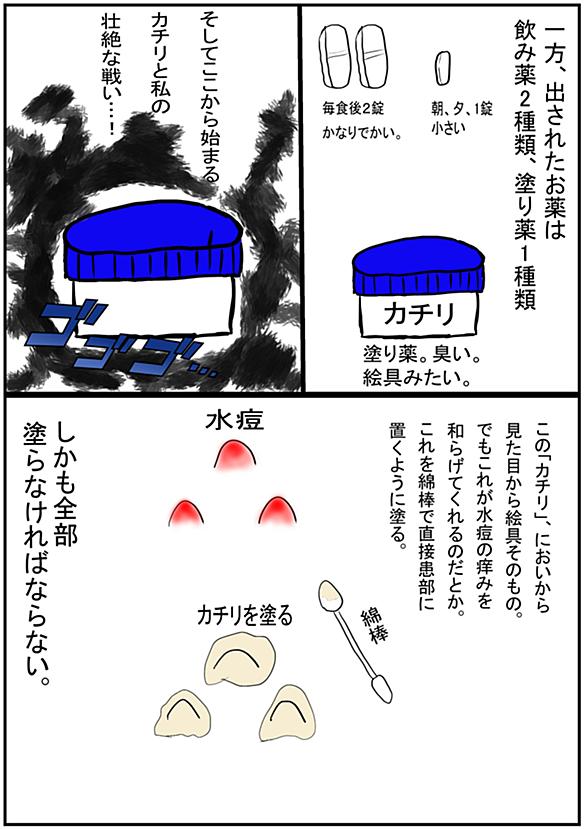 一方、出されたお薬は
飲み薬2種類、塗り薬1種類
朝、夕、1錠
小さい
毎食後2錠
かなりでかい。
カチリ
塗り薬。臭い。
絵具みたい。
そしてここから始まる
カチリと私の
壮絶な戦い…!
ゴゴゴゴ…
この「カチリ」、においから
見た目から絵具そのもの。
でもこれが水痘の痒みを
和らげてくれるのだとか。
これを綿棒で直接患部に
置くように塗る。
水痘
綿棒
カチリを塗る
しかも全部
塗らなければならない。